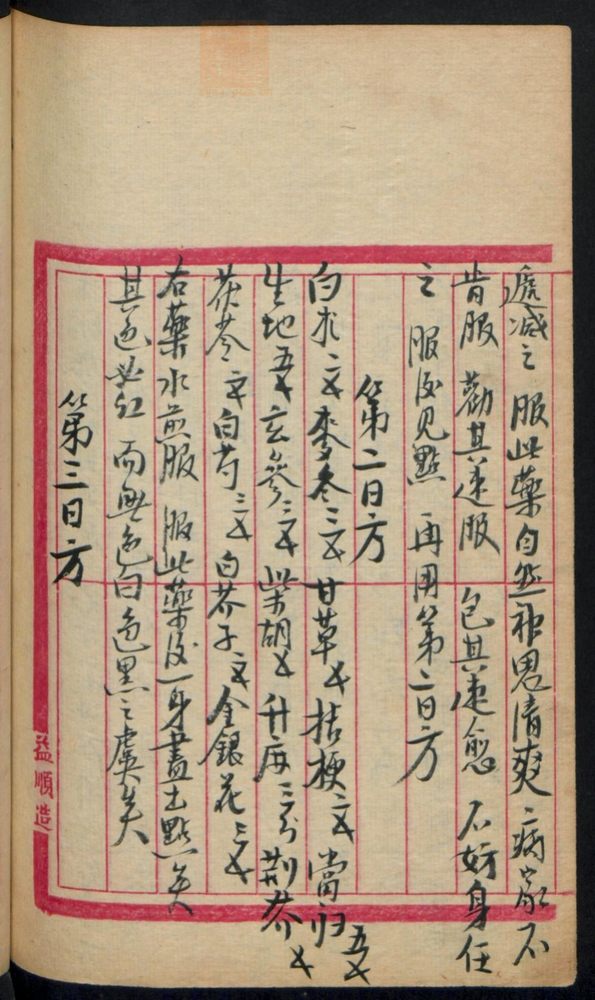 遞减之 服此藥自然神思清爽 二病家不
肯服 勸其速服 包其速愈 不妨身任
之 服後见點 再用第二日方
第二日方
白术二文 麥冬三文 甘草文 桔梗二文 當归五文
生地五文 玄參三文 柴胡文 升麻三分 荆芥文
茯苓二文 白芍三文 白芥子二文 金銀花三文
右藥水煎服 服此藥後一身盡出點矣
其色必红 而無色白色黑之虞矣
第三日方
益順造